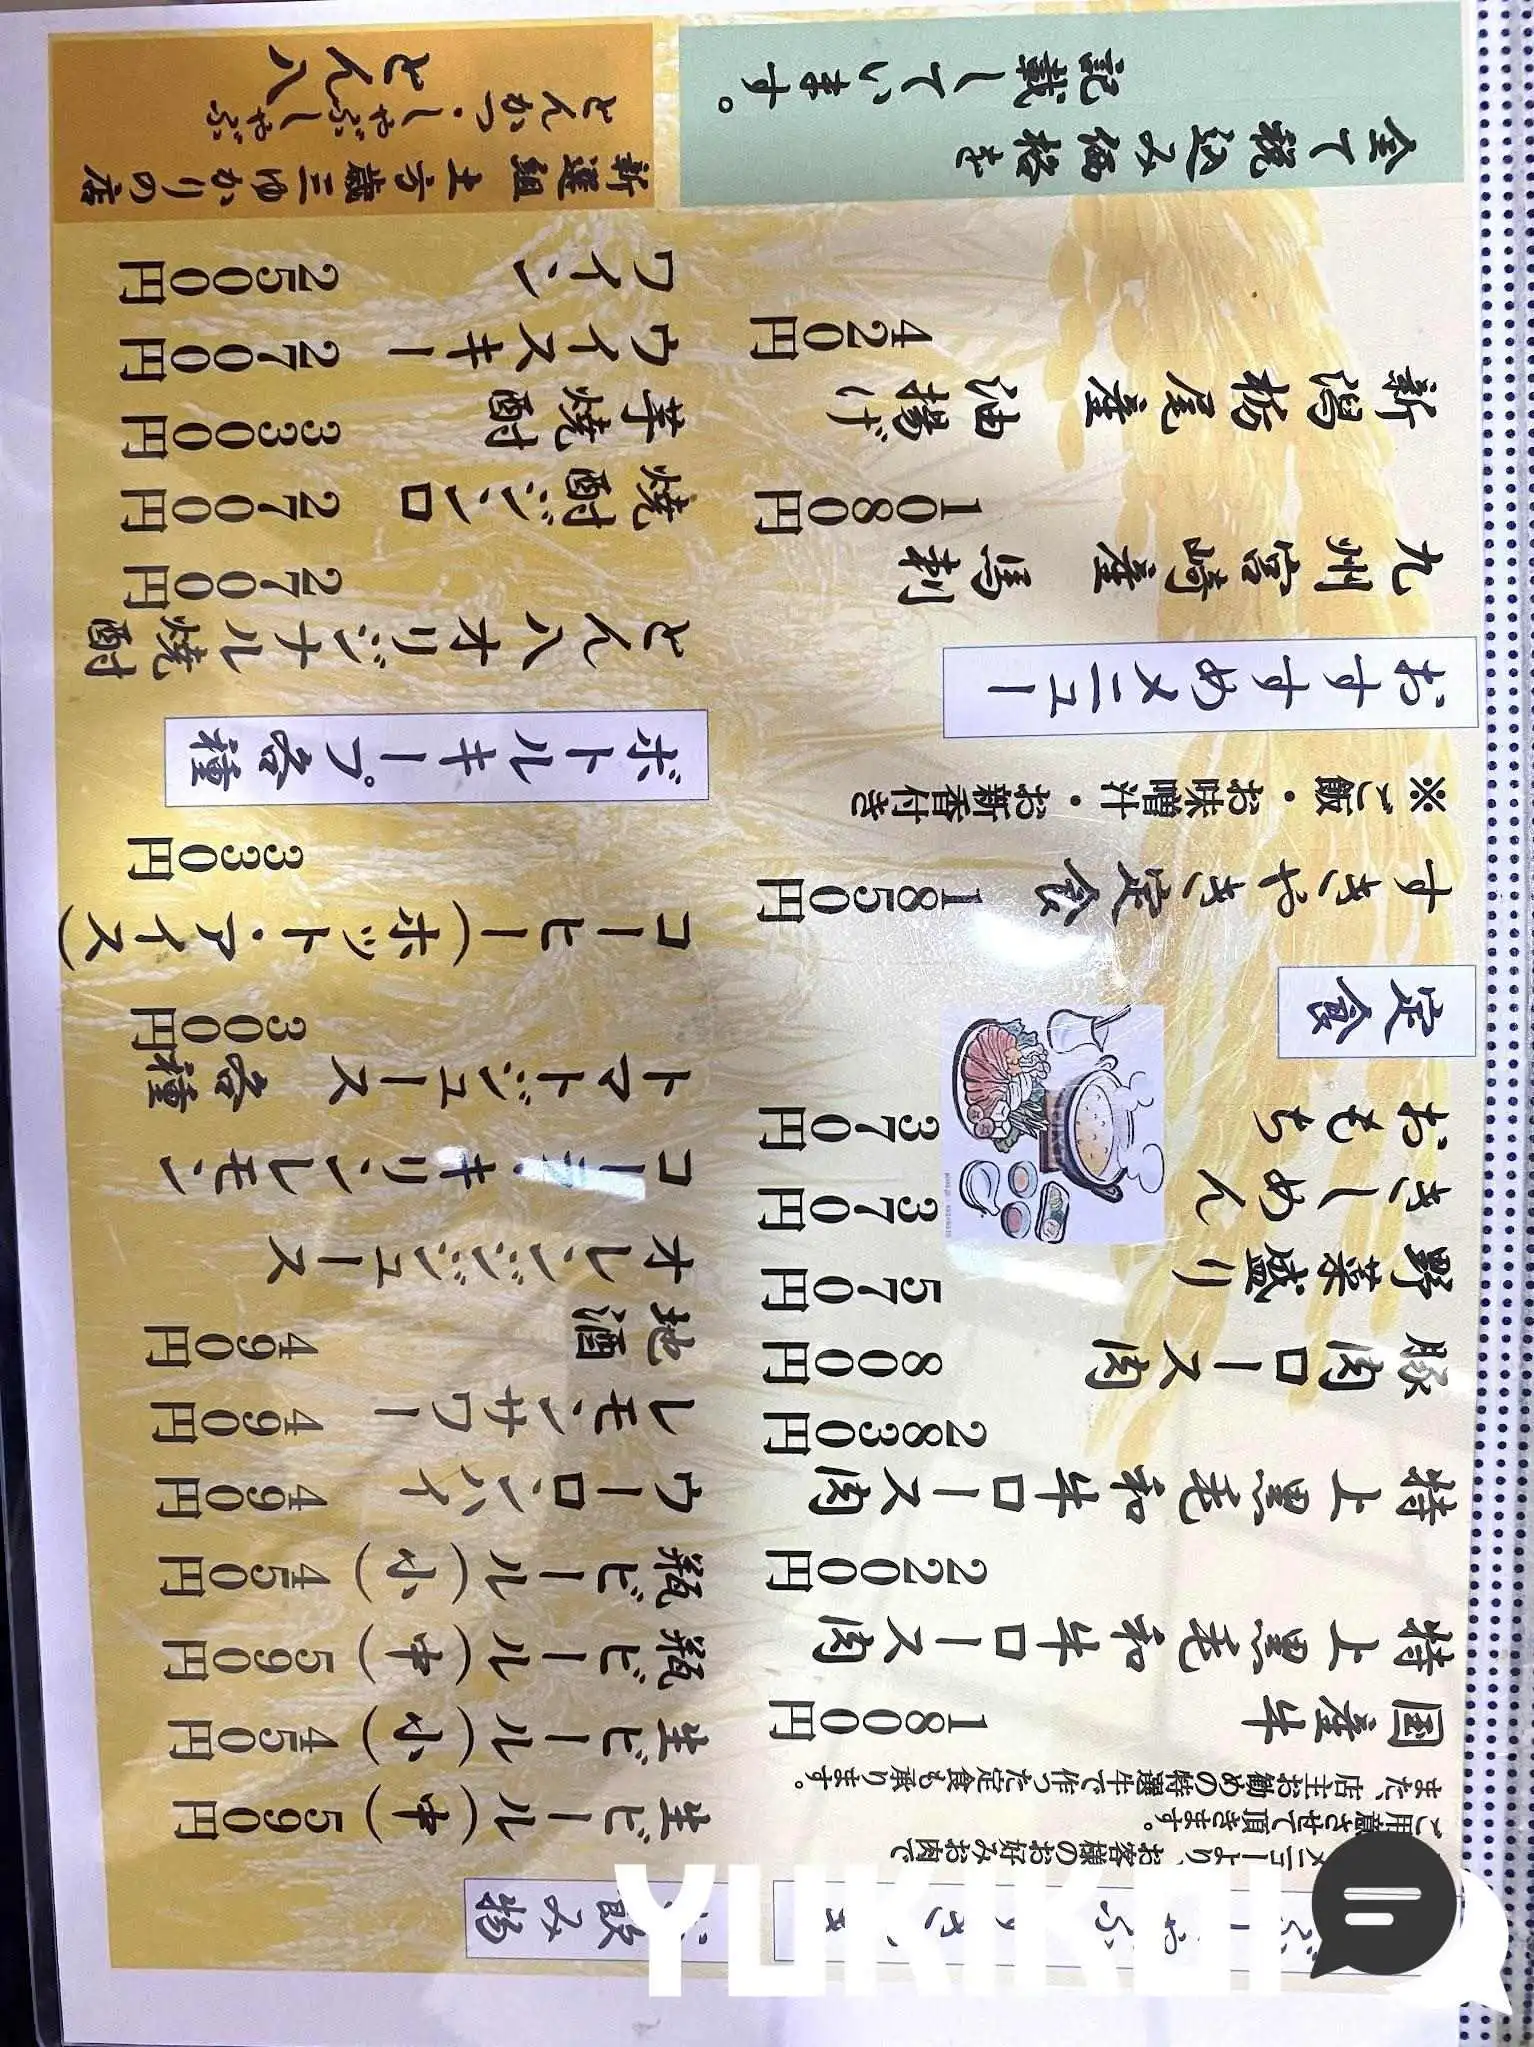 メニューより、お客様のお好みお肉で
ご用意させて頂きます。
また、店主お勧めの特選牛で作った定食も承ります。
国産牛 1800円
特上黒毛和牛ロース肉
2200円
特上黒毛和牛ロース肉
2830円
豚肉ロース肉 800円
野菜盛り 570円
きしめん 370円
おもち 370円
定食
すきやき定食 1850円
※ご飯・お味噌汁・お新香付き
おすすめメニュー
九州宮崎産 馬刺
1080円
新潟栃尾産 油揚げ
420円
全て税込み価格を
記載しています。
飲み物
生ビール(中) 590円
生ビール(小) 450円
瓶ビール(中) 590円
瓶ビール(小) 450円
ウーロンハイ 490円
レモンサワー 490円
地酒 490円
オレンジジュース
コーラ・キリンレモン
トマトジュース 各種
300円
コーヒー(ホット・アイス)
330円
ボトルキープ各種
とん八オリジナル焼酎
2700円
焼酎ジンロ 2700円
芋焼酎 3300円
ウイスキー 2700円
ワイン 2500円
新選組 土方歳三ゆかりの店
とんかつ・しゃぶしゃぶ
とん八